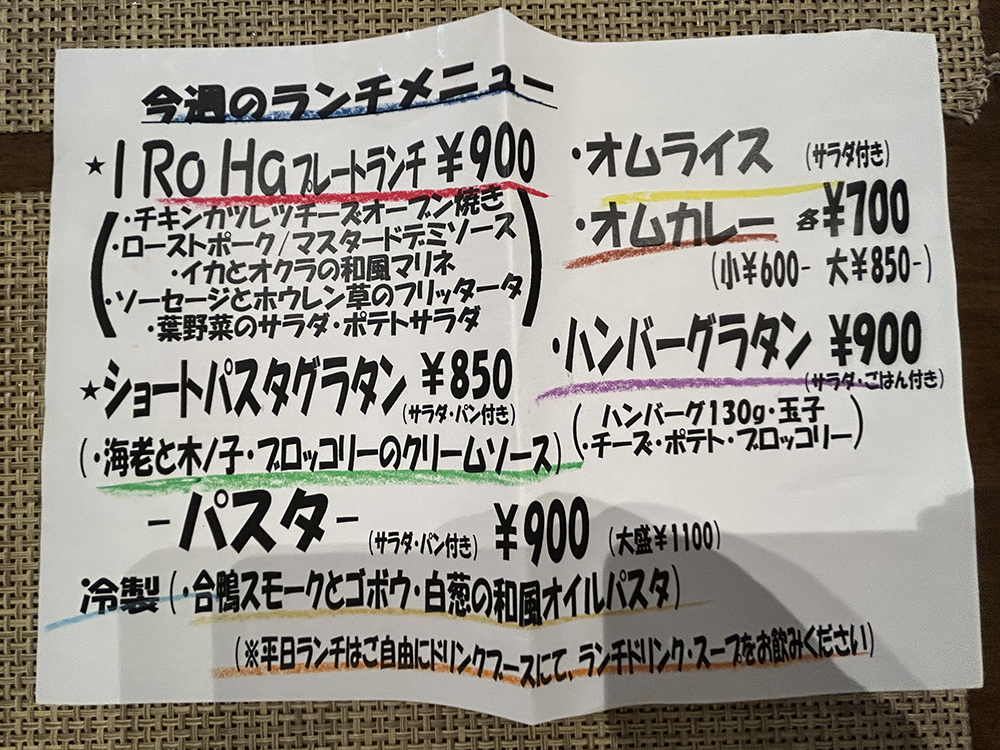 今週のランチメニュー
★IRoHaプレートランチ ¥900
(・チキンカツレツチーズオーブン焼き
・ローストポーク/マスタードデミソース
・イカとオクラの和風マリネ
・ソーセージとホウレン草のフリッタータ
・葉野菜のサラダ・ポテトサラダ)
★ショートパスタグラタン ¥850
(サラダ・パン付き)
(・海老と木ノ子・ブロッコリーのクリームソース)
・オムライス (サラダ付き)
・オムカレー 各¥700
(小¥600- 大¥850-)
・ハンバーグラタン ¥900
(サラダ・ごはん付き)
(ハンバーグ130g・玉子
・チーズ・ポテト・ブロッコリー)
-パスタ- (サラダ・パン付き) ¥900 (大盛¥1100)
冷製(・合鴨スモークとゴボウ・白葱の和風オイルパスタ)
(※平日ランチはご自由にドリンクブースにて、ランチドリンク・スープをお飲みください)